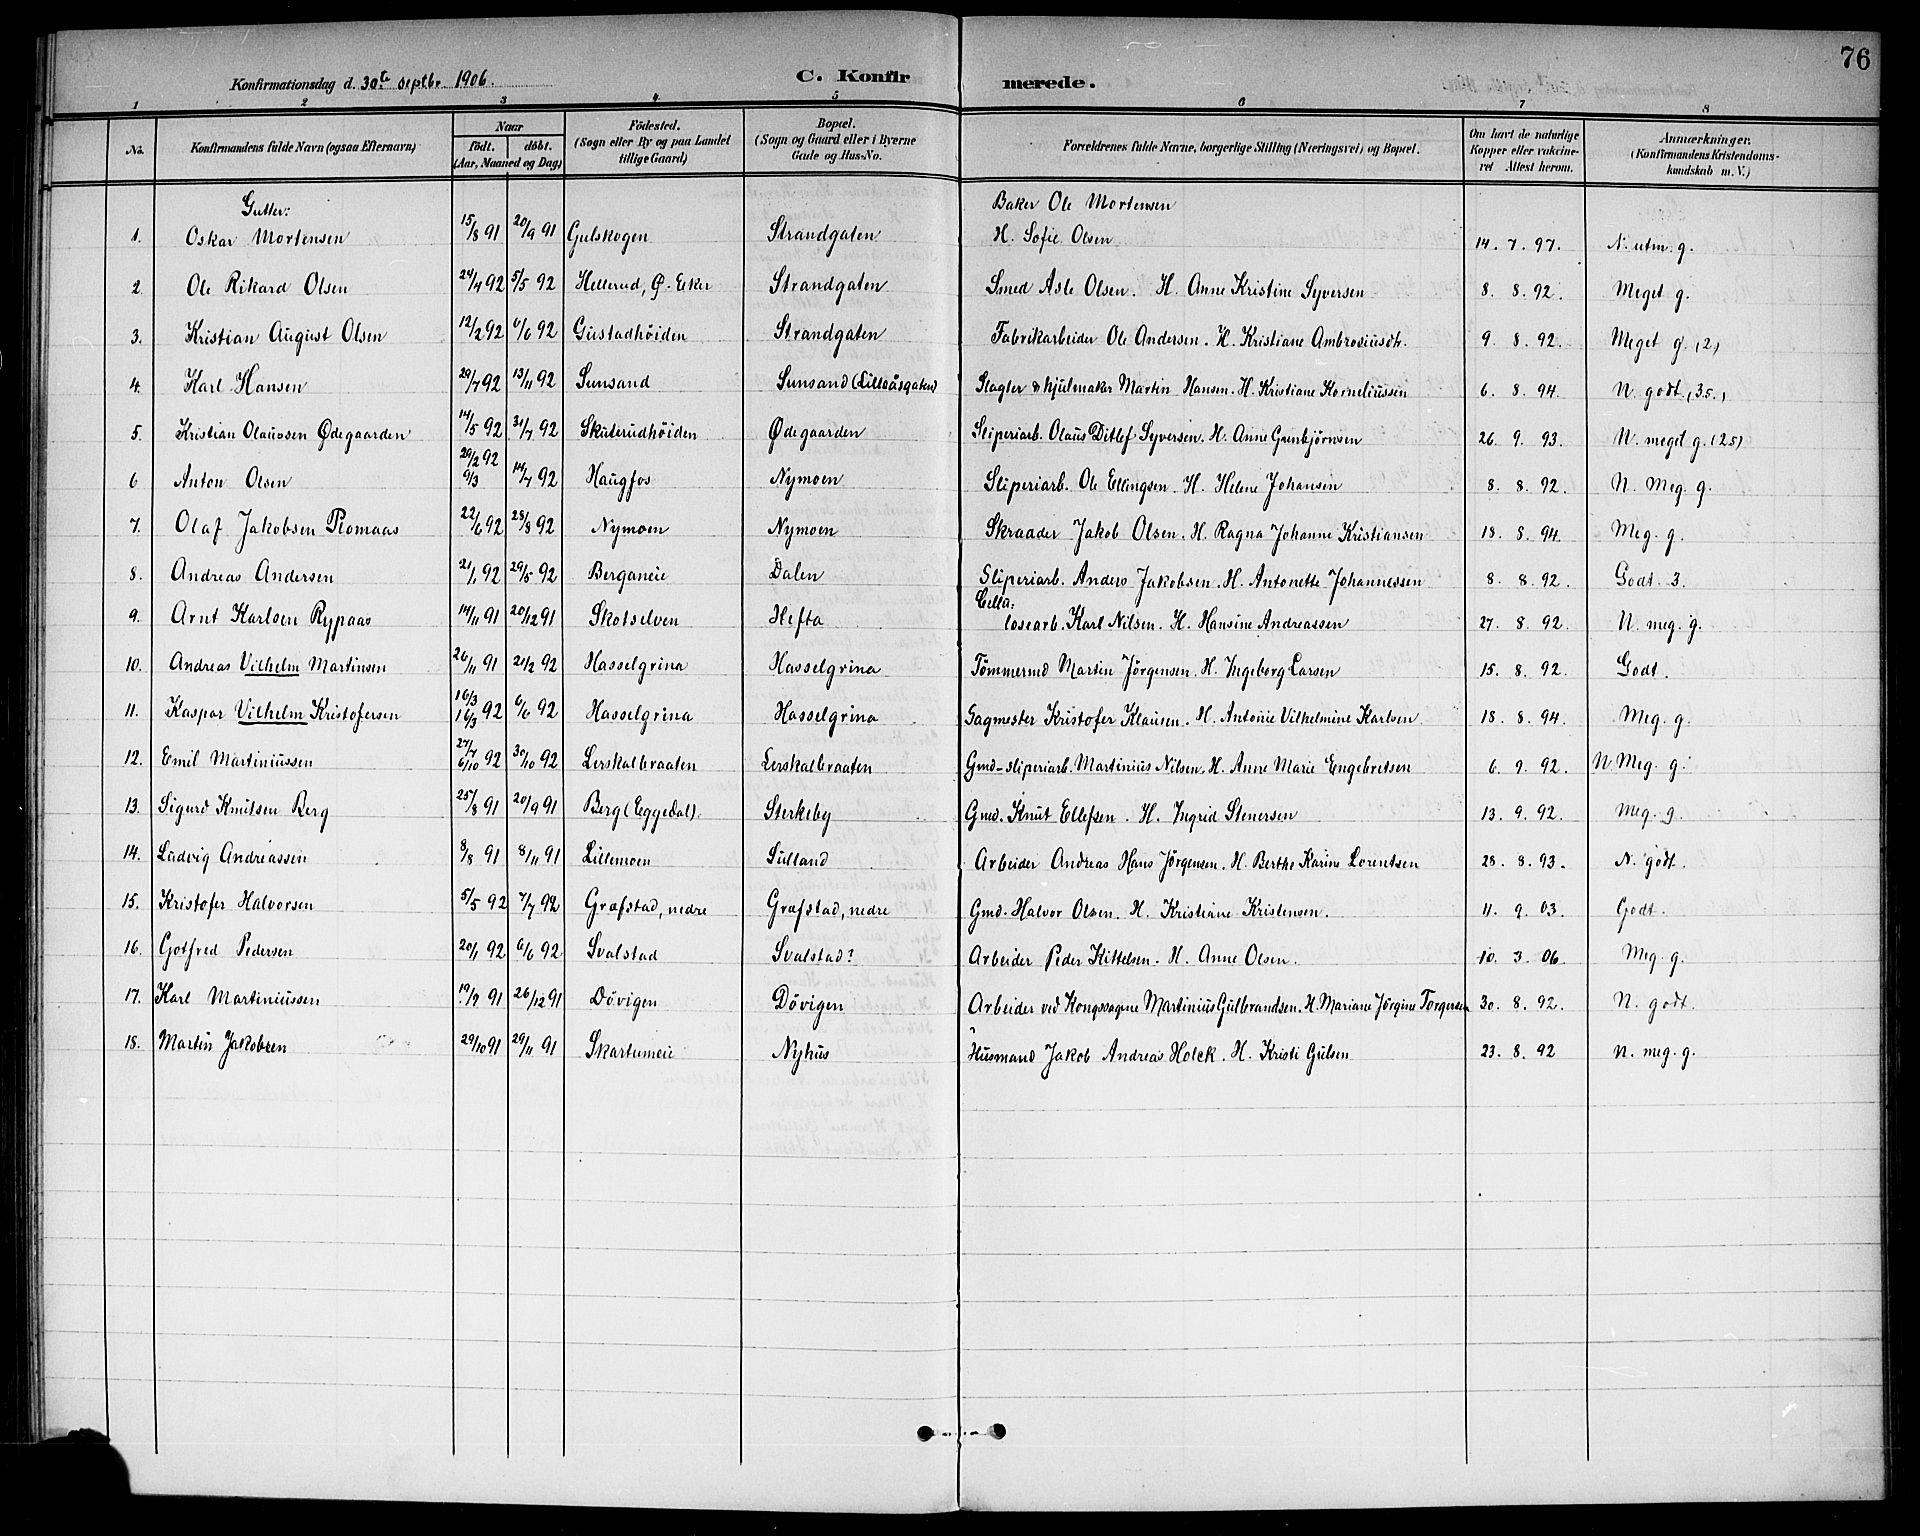 76
Konfirmationsdag d. 30te septbr. 1906.
C. Konfirmerede.
1 2 3 4 5 6 7 8
No. | Konfirmandens fulde Navn (ogsaa Efternavn) | Naar født. døbt. (Aar, Maaned og Dag) | Fødested. (Sogn eller By og paa Landet tillige Gaard) | Bopæl. (Sogn og Gaard eller i Byerne Gade og Hus-No. | Forældrenes fulde Navne, borgerlige Stilling (Næringsvei) og Bopæl. | Om havt de naturlige Kopper eller vakcineret Attest herom. | Anmærkninger. (Konfirmandens Kristendomskundskab m. V.)
Gutter:
1. Oskar Mortensen | 15/8 91 | 20/9 91 | Gulskogen | Strandgaten | Baker Ole Mortensen H. Sofie Olsen | 14. 7. 97. | N. utm. g.
2. Ole Rikard Olsen | 24/4 92 | 5/5 92 | Hellerud, Ø. Eker | Strandgaten | Smed Asle Olsen. H. Anne Kristine Syversen | 8. 8. 92. | Meget g.
3. Kristian August Olsen | 12/2 92 | 6/6 92 | Gustadhöiden | Strandgaten | Fabrikarbeider Ole Andersen. H. Kristiane Ambrosiusdtr. | 9. 8. 92. | Meget g. (2)
4. Karl Hansen | 29/7 92 | 13/11 92 | Sunsand | Sunsand (Lilleåsgaten) | Slagter & hjulmaker Martin Hansen. H. Kristiane Korneliussen | 6. 8. 94. | N. godt. (3.5.)
5. Kristian Olaussen Ødegaarden | 14/5 92 | 31/7 92 | Skuterudhöiden | Ødegaarden | Sliperiarb. Olaus Ditlef Syversen. H. Anne Gunbjörnsen | 26. 9. 93. | N. meget g. (25)
6 Anton Olsen | 29/2 92 9/3 | 14/7 92 | Haugfos | Nymoen | Sliperiarb. Ole Ellingsen. H. Helene Johansen | 8. 8. 92. | N. Meg. g.
7. Olaf Jakobsen Plomaas | 22/6 92 | 28/8 92 | Nymoen | Nymoen | Skraader Jakob Olsen. H. Ragna Johanne Kristiansen | 18. 8. 94. | Meg. g.
8. Andreas Andersen | 21/1 92 | 29/5 92 | Berganeie | Dalen | Sliperiarb. Anders Jakobsen. H. Antonette Johannessen | 8. 8. 92. | Godt. 3.
9. Arnt Karlsen Rypaas | 14/11 91 | 20/12 91 | Skotselven | Hefta | Cellulosearb. Karl Nilsen. H. Hansine Andreassen | 27. 8. 92. | N. meg. g.
10. Andreas Vilhelm Martinsen | 26/11 91 | 21/2 92 | Hasselgrina | Hasselgrina | Tömmermd Martin Jörgensen. H. Ingeborg Larsen | 15. 8. 92. | Godt.
11. Kaspar Vilhelm Kristofersen | 16/3 16/3 92 | 6/6 92 | Hasselgrina | Hasselgrina | Sagmester Kristofer Klausen. H. Antonie Vilhelmine Karlsen | 18. 8. 94. | Meg. g.
12. Emil Martiniussen | 27/7 6/10 92 | 30/10 92 | Lerskalbraaten | Lerskalbraaten | Gmd-sliperiarb. Martinius Nilsen. H. Anne Marie Engebretsen | 6. 9. 92. | N. Meg. g.
13. Sigurd Knutsen Berg | 25/8 91 | 20/9 91 | Berg (Eggedal). | Sterkeby | Gmd. Knut Ellefsen. H. Ingrid Stenersen | 13. 9. 92. | Meg. g.
14. Ludvig Andreassen | 8/8 91 | 8/11 91 | Lillemoen | Sulland | Arbeider Andreas Hans Jörgensen. H. Berthe Karine Lorentsen | 28. 8. 93. | N. godt.
15. Kristofer Halvorsen | 5/5 92 | 7/7 92 | Grafstad, nedre | Grafstad, nedre | Gmd. Halvor Olsen. H. Kristiane Kristensen. | 11. 9. 03. | Godt.
16. Gotfred Pedersen | 20/1 92 | 6/6 92 | Svalstad | Svalstad? | Arbeider Peder Kittelsen. H. Anne Olsen. | 10. 3. 06. | Meg. g.
17. Karl Martiniussen | 19/9 91 | 26/12 91 | Dövigen | Dövigen | Arbeider ved Kongssagene Martinius Gulbrandsen. H. Mariane Jörgine Torgersen | 30. 8. 92. | N. godt.
18. Martin Jakobsen | 29/10 91 | 29/11 91 | Skartumeie | Nyhus | Husmand Jakob Andreas Holck. H. Kristi Gulsen | 23. 8. 92 | N. meg. g.